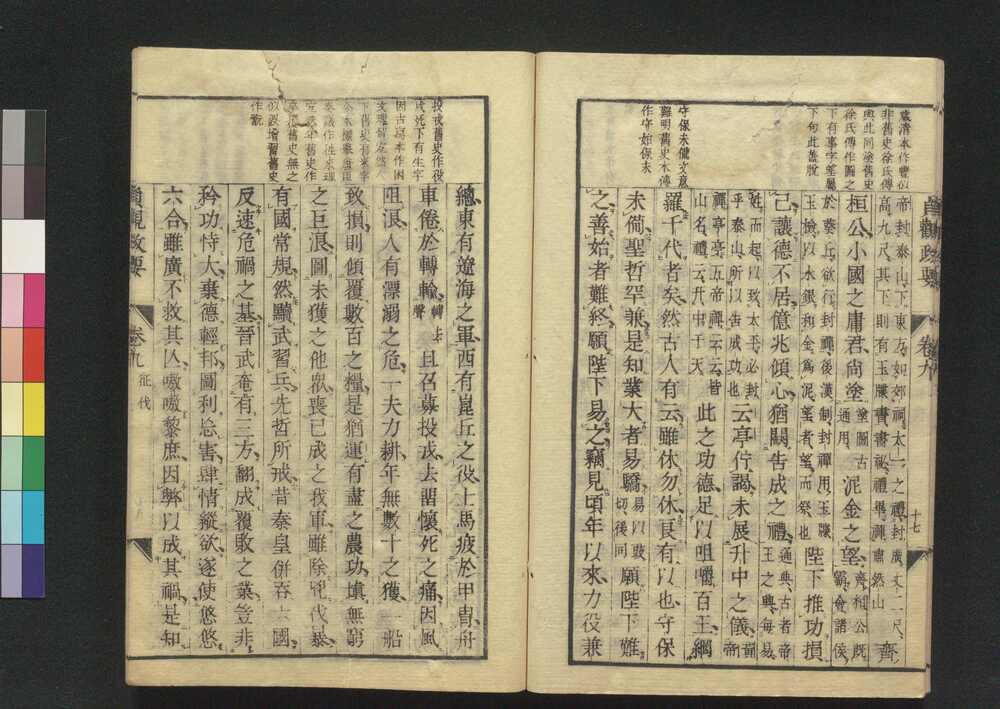 咸清本作豐似
非舊史徐氏傳
與此同塗舊史
徐氏傳作圖之
下有事字望屬
下句此蓋脫
守保未備文意
難明舊史本傳
作守始保末
貞觀政要 卷九 十七
帝封泰山、下東方、如郊祠太一之禮、封廣丈二尺、
高九尺、其下則有玉牒書、書祕、禮畢、禪肅然山 齊
桓公、小國之庸君、尚塗 塗圖古通用 泥金之望、 齊桓公既霸、會諸侯
於葵丘、欲行封禪、後漢制、封禪用玉牒
玉檢、以水銀和金爲泥、望者、望而祭也 陛下推功損
己、讓德不居、億兆傾心、猶闕告成之禮、 通典、古者帝王之興、每易
姓而起、以致太平、必封
乎泰山、所以告成功也 云亭佇謁、未展升中之儀、 黃帝
禪亭亭、五帝禪云云、皆
山名、禮云、升中于天 此之功德、足以咀嚼百王、網
羅千代者矣、然古人有云、雖休勿休、良有以也、守保
未備、聖哲罕兼、是知業大者易驕、 易以豉切、後同 願陛下難
之、善始者難終、願陛下易之、竊見頃年以來、力役兼
投戎舊史作役
戎死下有生字
總、東有遼海之軍、西有崑丘之役、士馬疲於甲冑、舟
車倦於轉輸、 轉上聲 且召募投戎、去留懷死之痛、因風
阻浪、人有漂溺之危、一夫力耕、年無數十之獲、一船
致損、則傾覆數百之糧、是猶運有盡之農功、塡無窮
之巨浪、圖未獲之他衆、喪已成之我軍、雖除兇伐暴、
有國常規、然黷武習兵、先哲所戒、昔秦皇併吞六國、
反速危禍之基、晉武奄有三方、翻成覆敗之業、豈非
矜功恃大、棄德輕邦、圖利忘害、肆情縱欲、遂使悠悠
六合、雖廣不救其亾、嗷嗷黎庶、因弊以成其禍、是知
貞觀政要 卷九 征伐